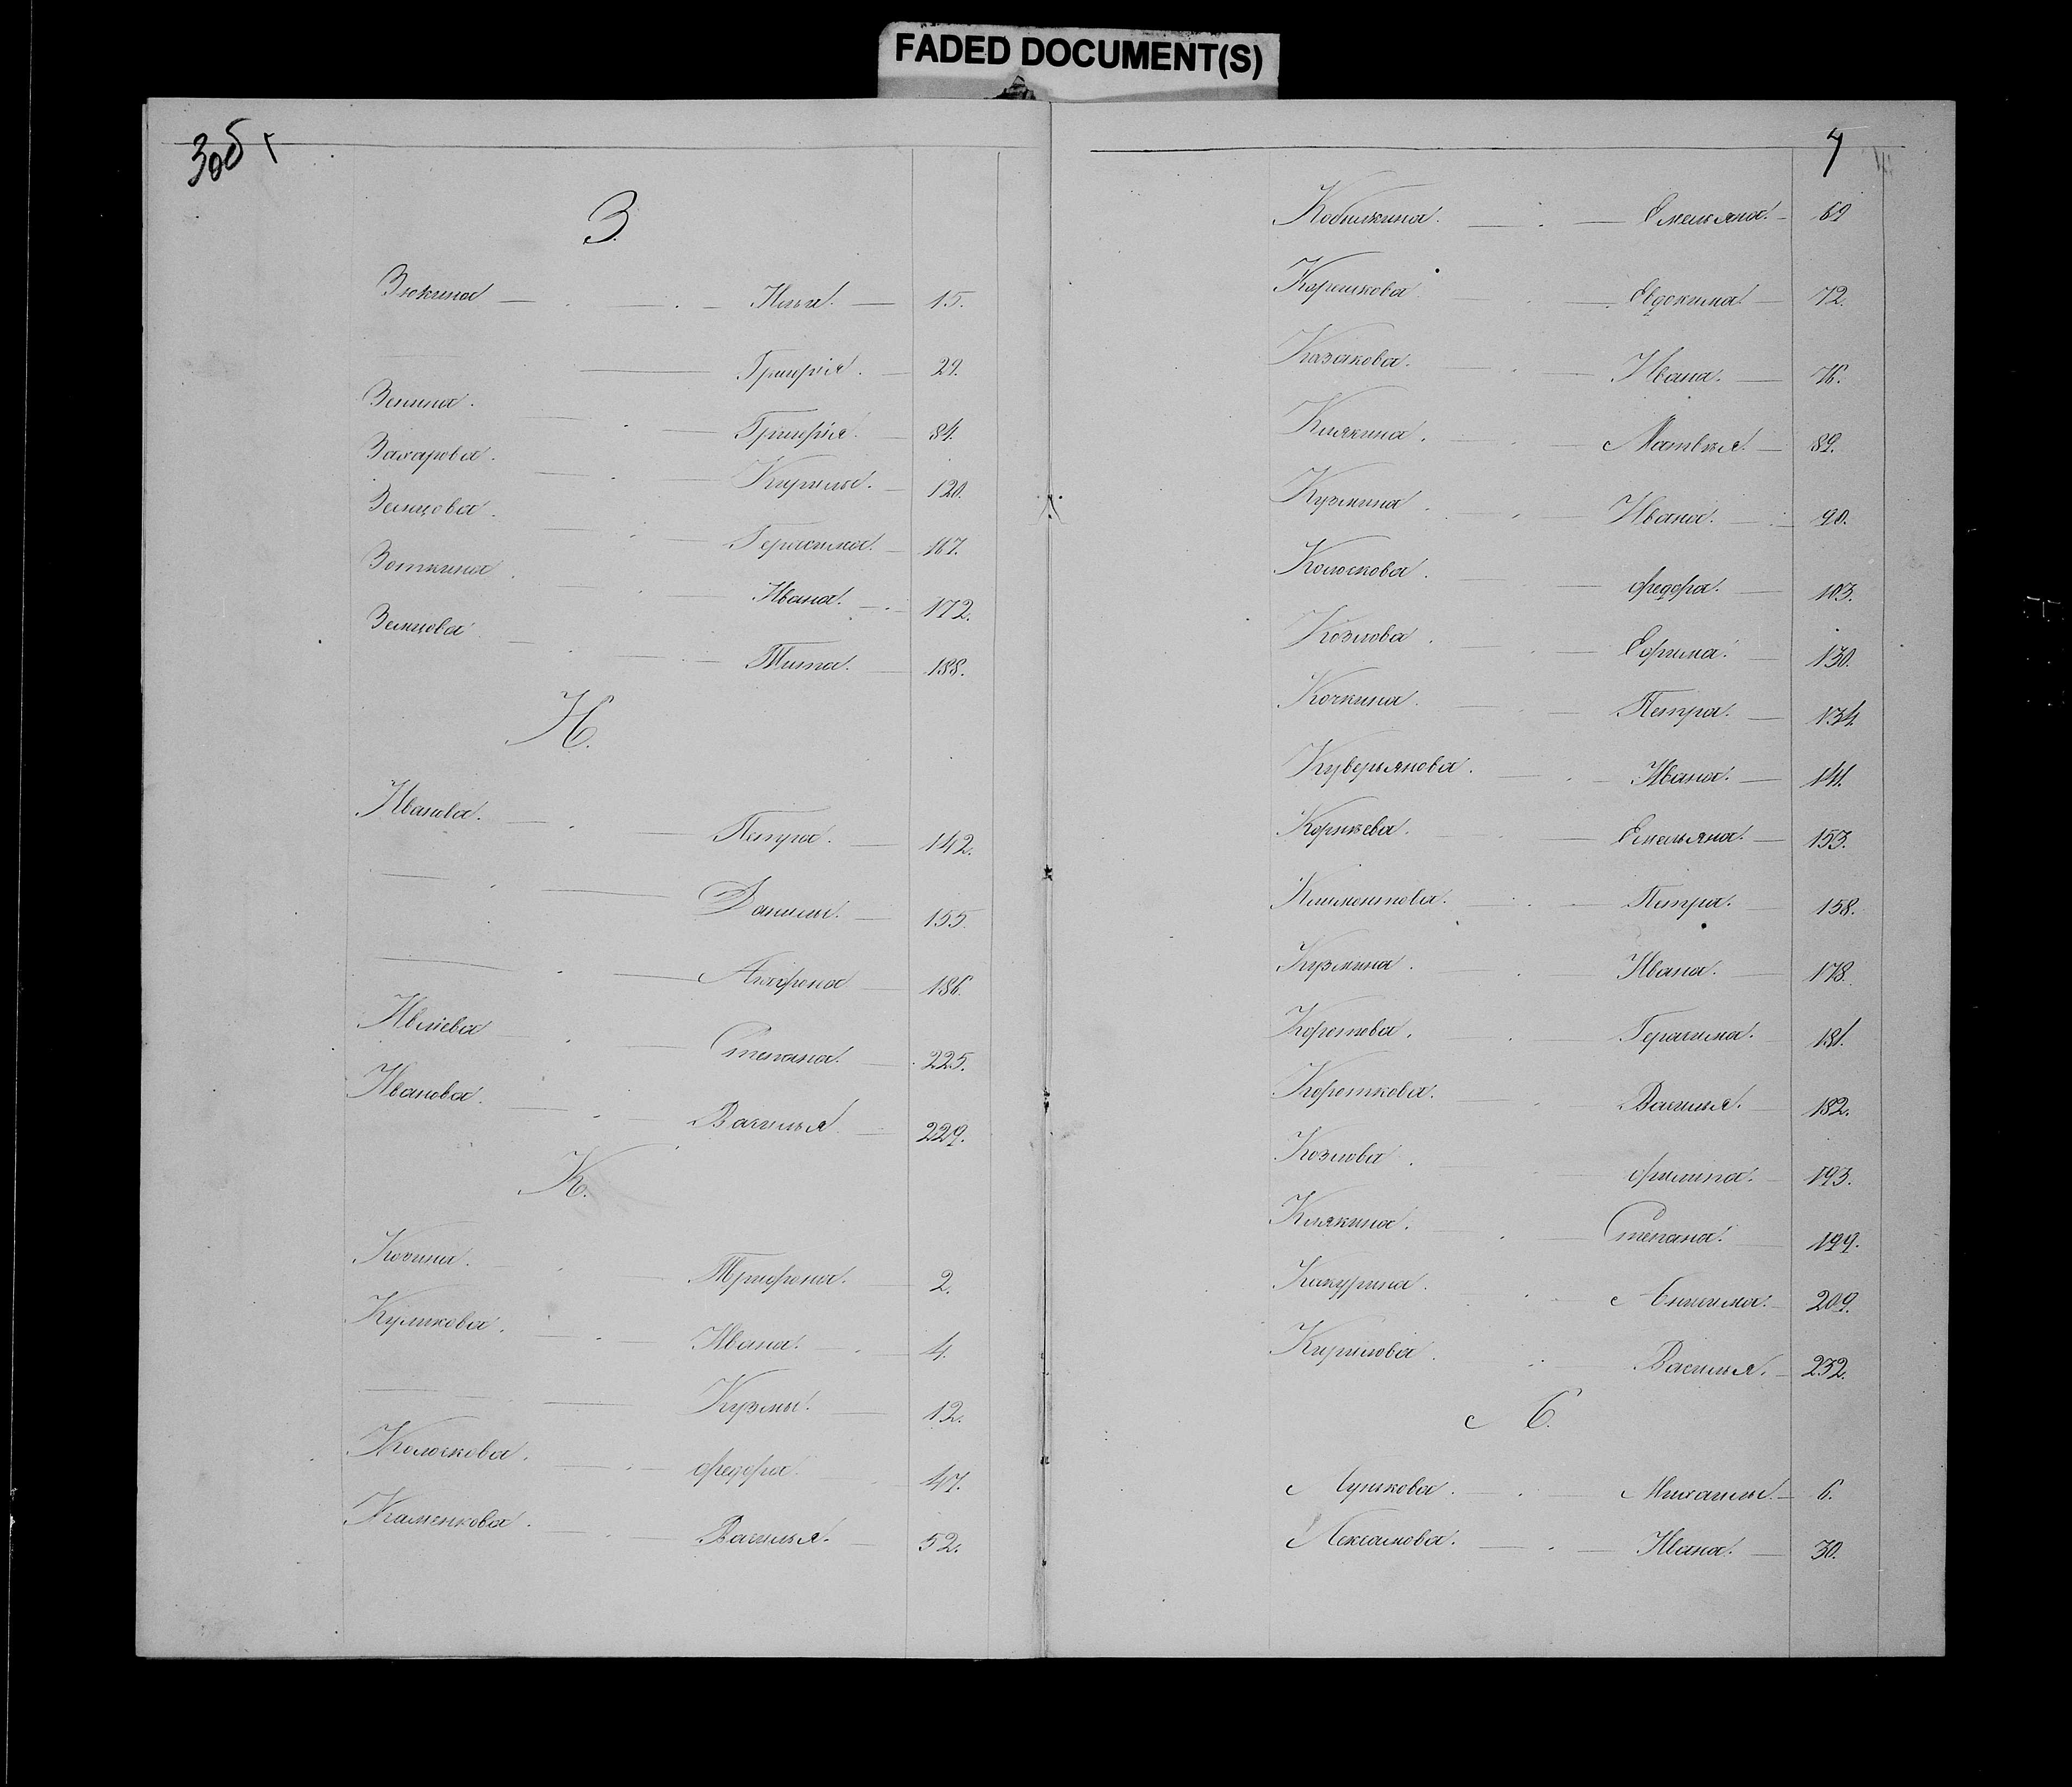 FADED DOCUMENT(S)
3об
З.
Зюкина — Ильи. — 15.
— Григорія. — 29.
Зенина. — Григорія. — 84.
Захарова. — Кирилы. — 120.
Земцова. — Герасима. — 167.
Зоткина. — Ивана. — 172.
Земцова — Тита. — 188.
И.
Иванова. — Петра. — 142.
— Данилы. — 155.
— Агафона — 186.
Ивлiева — Степана. — 225.
Иванова. — Василья — 229.
К.
Козина. — Трифона. — 2.
Куликова. — Ивана. — 4.
— Кузмы. — 12.
Колоскова. — Федора. — 47.
Каменкова. — Василья. — 52.
4
Кобылкина. — Емельяна. — 69
Коршкова — Евдокима. — 72.
Казакова. — Ивана. — 76.
Клякина. — Матвѣя. — 89.
Кузмина. — Ивана. — 90.
Колоскова. — Федора. — 103.
Козлова. — Ефима. — 130.
Кочкина. — Петра. — 134.
Куверьянова. — Ивана. — 141.
Корнѣева. — Емельяна. — 153.
Климонтова. — Петра. — 158.
Кузмина. — Ивана. — 178.
Коротова. — Герасима. — 181.
Короткова. — Василья. — 182.
Козлова. — Филипа. — 193.
Клякина. — Степана. — 199.
Кикурина. — 209.
Кирилова. — Василья. — 232.
Л.
Лунькова. — Михаилы. — 6.
Лексанова. — Ивана. — 30.